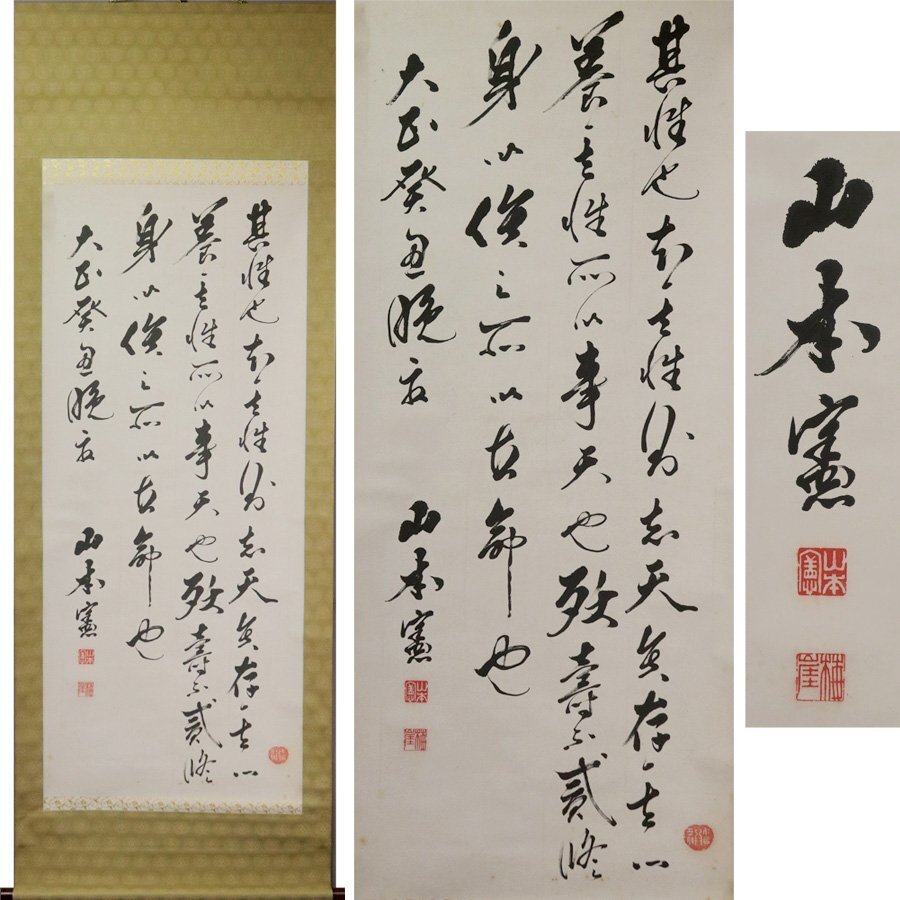 其性也知其性則知天矣存其心
養其性所以事天也殀壽不貳修
身以俟之所以立命也
大正癸丑晩夏 山本憲
其性也知其性則知天矣存其心
養其性所以事天也殀壽不貳修
身以俟之所以立命也
大正癸丑晩夏 山本憲
山本憲
山本憲
梅崖